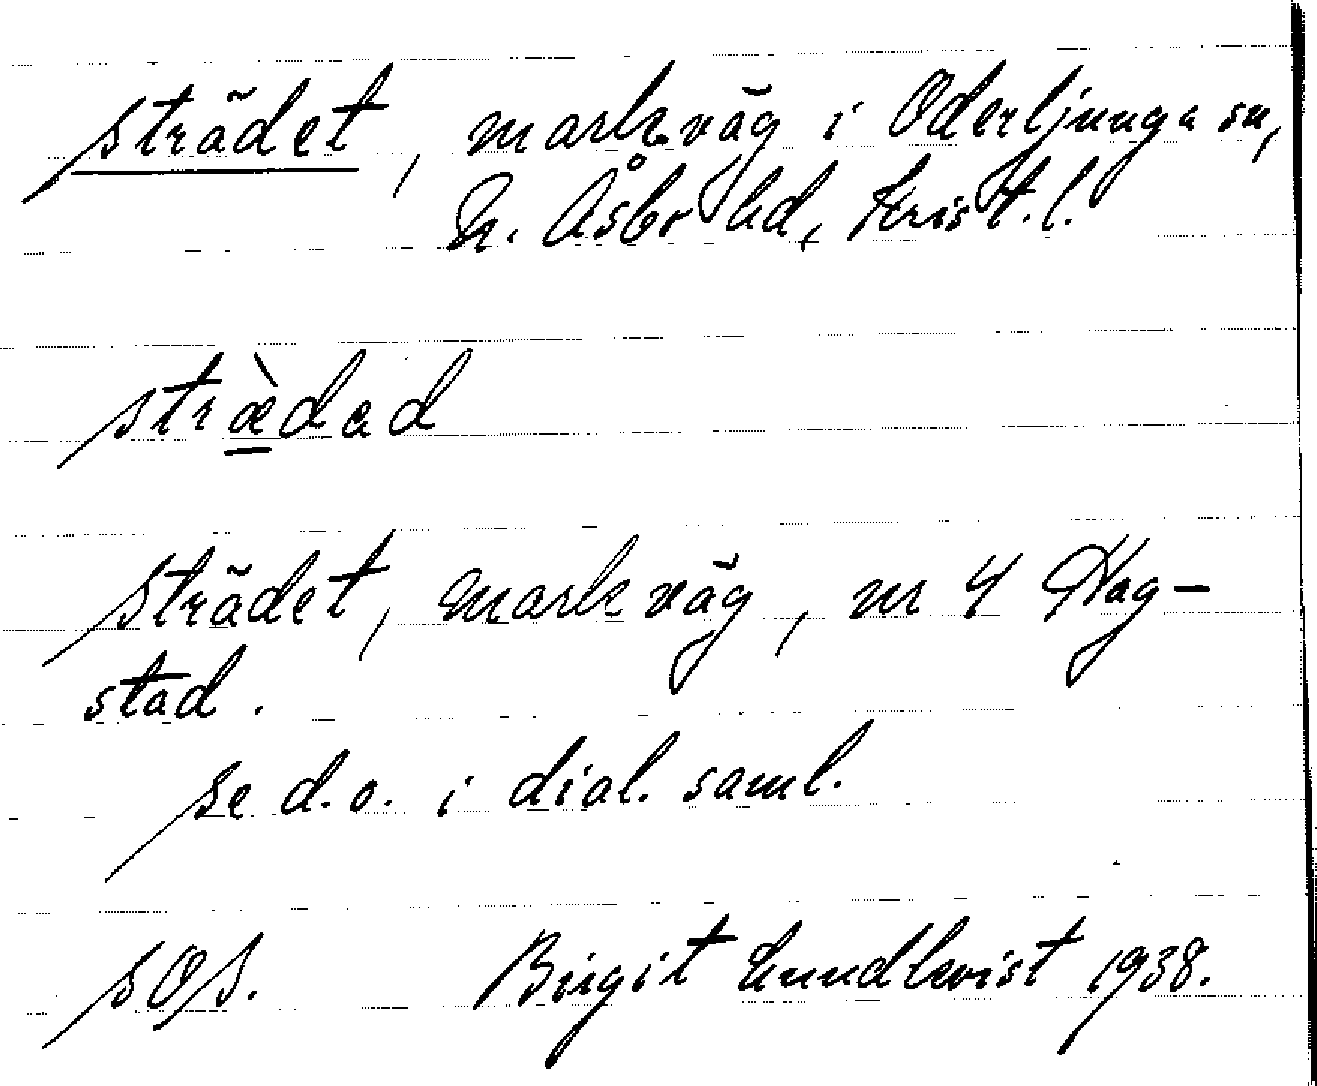 strädet, markväg i Oderljunga sn,
N. Åsbo hd, Krist. l.
stræ̀dad
strädet, markväg, nr 4 Hag-
stad.
se d.o. i dial. saml.
SOS. Birgit Lundkvist 1938.